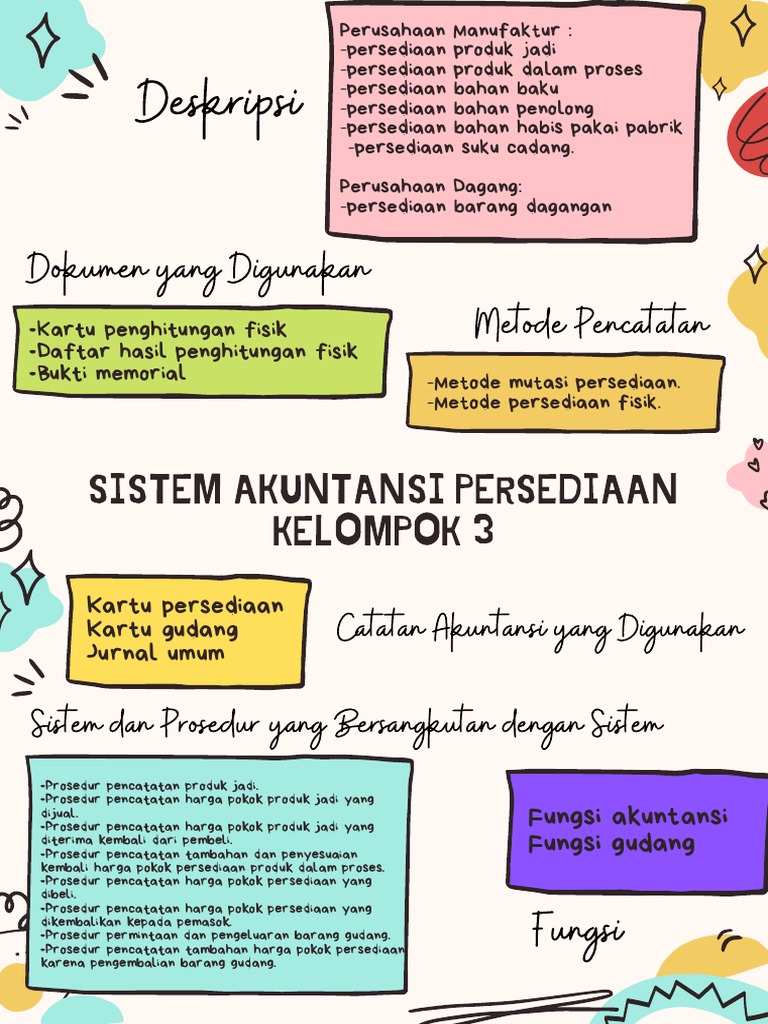 Deskripsi
Perusahaan Manufaktur :
-persediaan produk jadi
-persediaan produk dalam proses
-persediaan bahan baku
-persediaan bahan penolong
-persediaan bahan habis pakai pabrik
-persediaan suku cadang.
Perusahaan Dagang:
-persediaan barang dagangan
Dokumen yang Digunakan
-Kartu penghitungan fisik
-Daftar hasil penghitungan fisik
-Bukti memorial
Metode Pencatatan
-Metode mutasi persediaan.
-Metode persediaan fisik.
SISTEM AKUNTANSI PERSEDIAAN
KELOMPOK 3
Kartu persediaan
Kartu gudang
Jurnal umum
Catatan Akuntansi yang Digunakan
Sistem dan Prosedur yang Bersangkutan dengan Sistem
-Prosedur pencatatan produk jadi.
-Prosedur pencatatan harga pokok produk jadi yang
dijual.
-Prosedur pencatatan harga pokok produk jadi yang
diterima kembali dari pembeli.
-Prosedur pencatatan tambahan dan penyesuaian
kembali harga pokok persediaan produk dalam proses.
-Prosedur pencatatan harga pokok persediaan yang
dibeli.
-Prosedur pencatatan harga pokok persediaan yang
dikembalikan kepada pemasok.
-Prosedur permintaan dan pengeluaran barang gudang.
-Prosedur pencatatan tambahan harga pokok persediaan
karena pengembalian barang gudang.
Fungsi akuntansi
Fungsi gudang
Fungsi